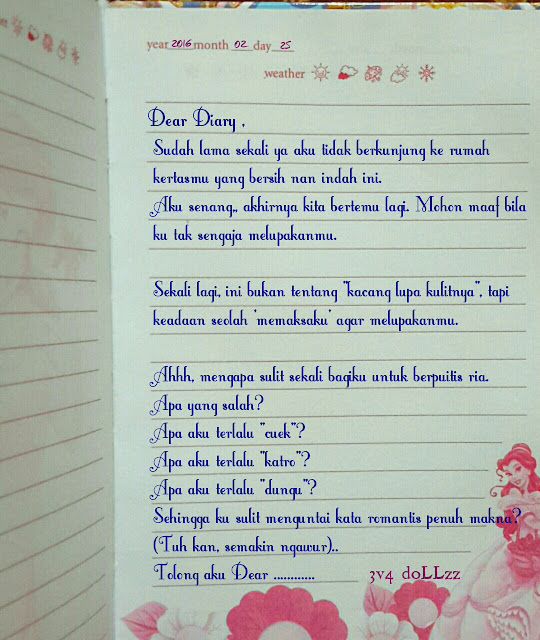 year 2016 month 02 day 25
weather
Dear Diary ,
Sudah lama sekali ya aku tidak berkunjung ke rumah
kertasmu yang bersih nan indah ini.
Aku senang,, akhirnya kita bertemu lagi. Mohon maaf bila
ku tak sengaja melupakanmu.
Sekali lagi, ini bukan tentang "kacang lupa kulitnya", tapi
keadaan seolah 'memaksaku' agar melupakanmu.
Ahhh, mengapa sulit sekali bagiku untuk berpuitis ria.
Apa yang salah?
Apa aku terlalu "cuek"?
Apa aku terlalu "katro"?
Apa aku terlalu "dungu"?
Sehingga ku sulit menguntai kata romantis penuh makna?
(Tuh kan, semakin ngawur)..
Tolong aku Dear ............ 3v4 doLLzz